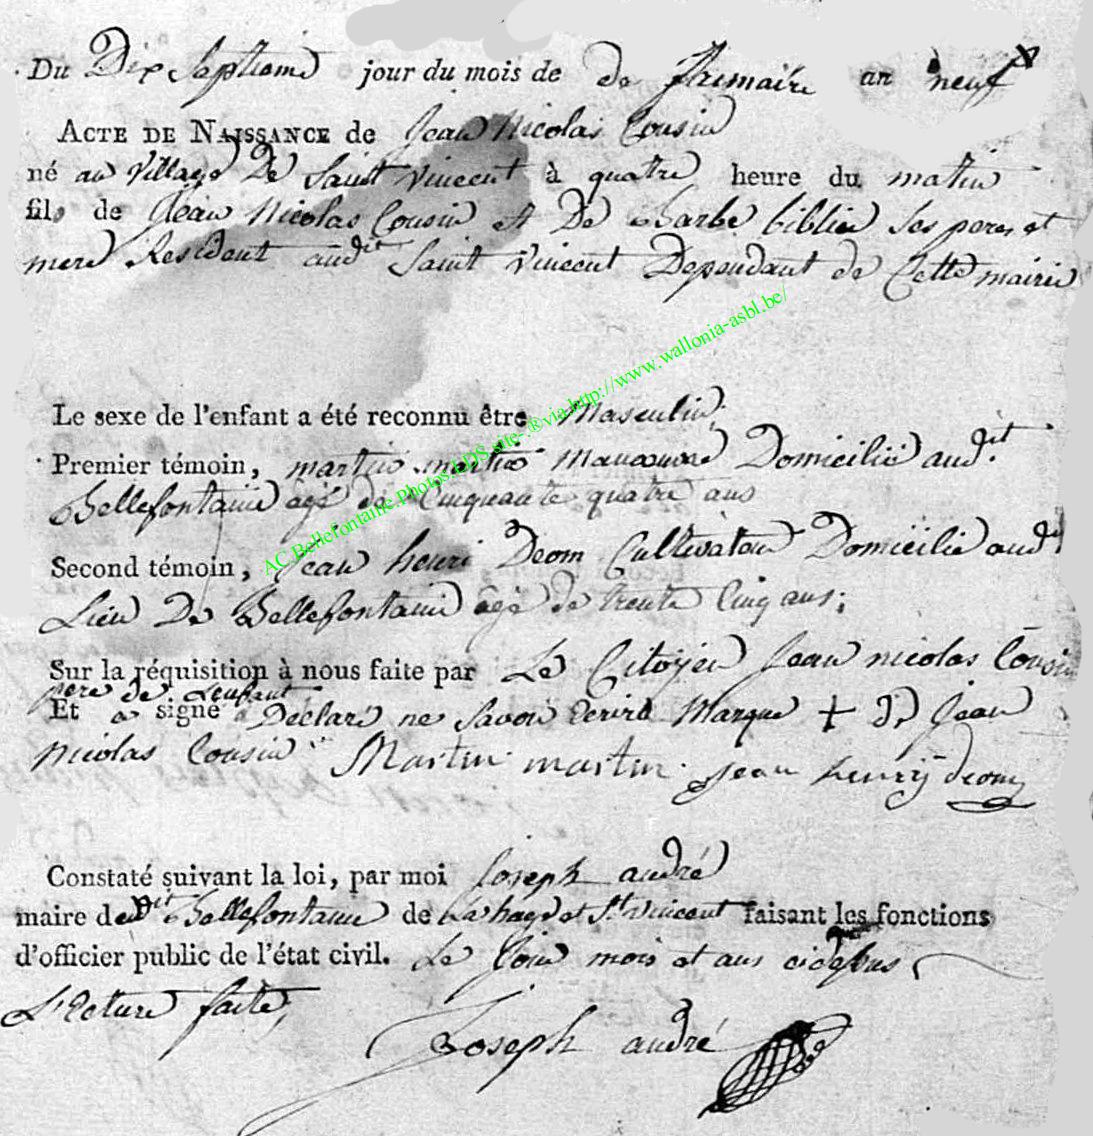 Du Dix Septieme jour du mois de de frimaire an neuf
ACTE DE NAISSANCE de Jean Nicolas Cousin
né au Village De Saint Vincent à quatre heure du matin
fils de Jean Nicolas Cousin et De Barbe biblin Ses peres et
mere Resident audit Saint Vincent Dependant de Cette mairie
Le sexe de l'enfant a été reconnu être Masculin;
Premier témoin, martin martin Manoeuvre Domicilié audit
Bellefontaine âgé de Cinquante quatre ans
Second témoin, Jean henri Deom Cultivateur Domicilié audit
Lieu De Bellefontaine âgé de trente Cinq ans;
Sur la réquisition à nous faite par Le Citoyen Jean nicolas Cousin
pere de Lenfant
Et a signé a Déclaré ne Savoir Ecrire Marque + Dt Jean
Nicolas Cousin Martin martin Jean henrÿ deom
Constaté suivant la loi, par moi Joseph andré
maire dudit Bellefontaine de Lahage et St Vincent faisant les fonctions
d'officier public de l'état civil. Le Jour mois et ans cidessus
Lecture faite,
Joseph andré
AC.Bellefontaine.Photos.LDS.site-®via.http://www.wallonia-asbl.be/